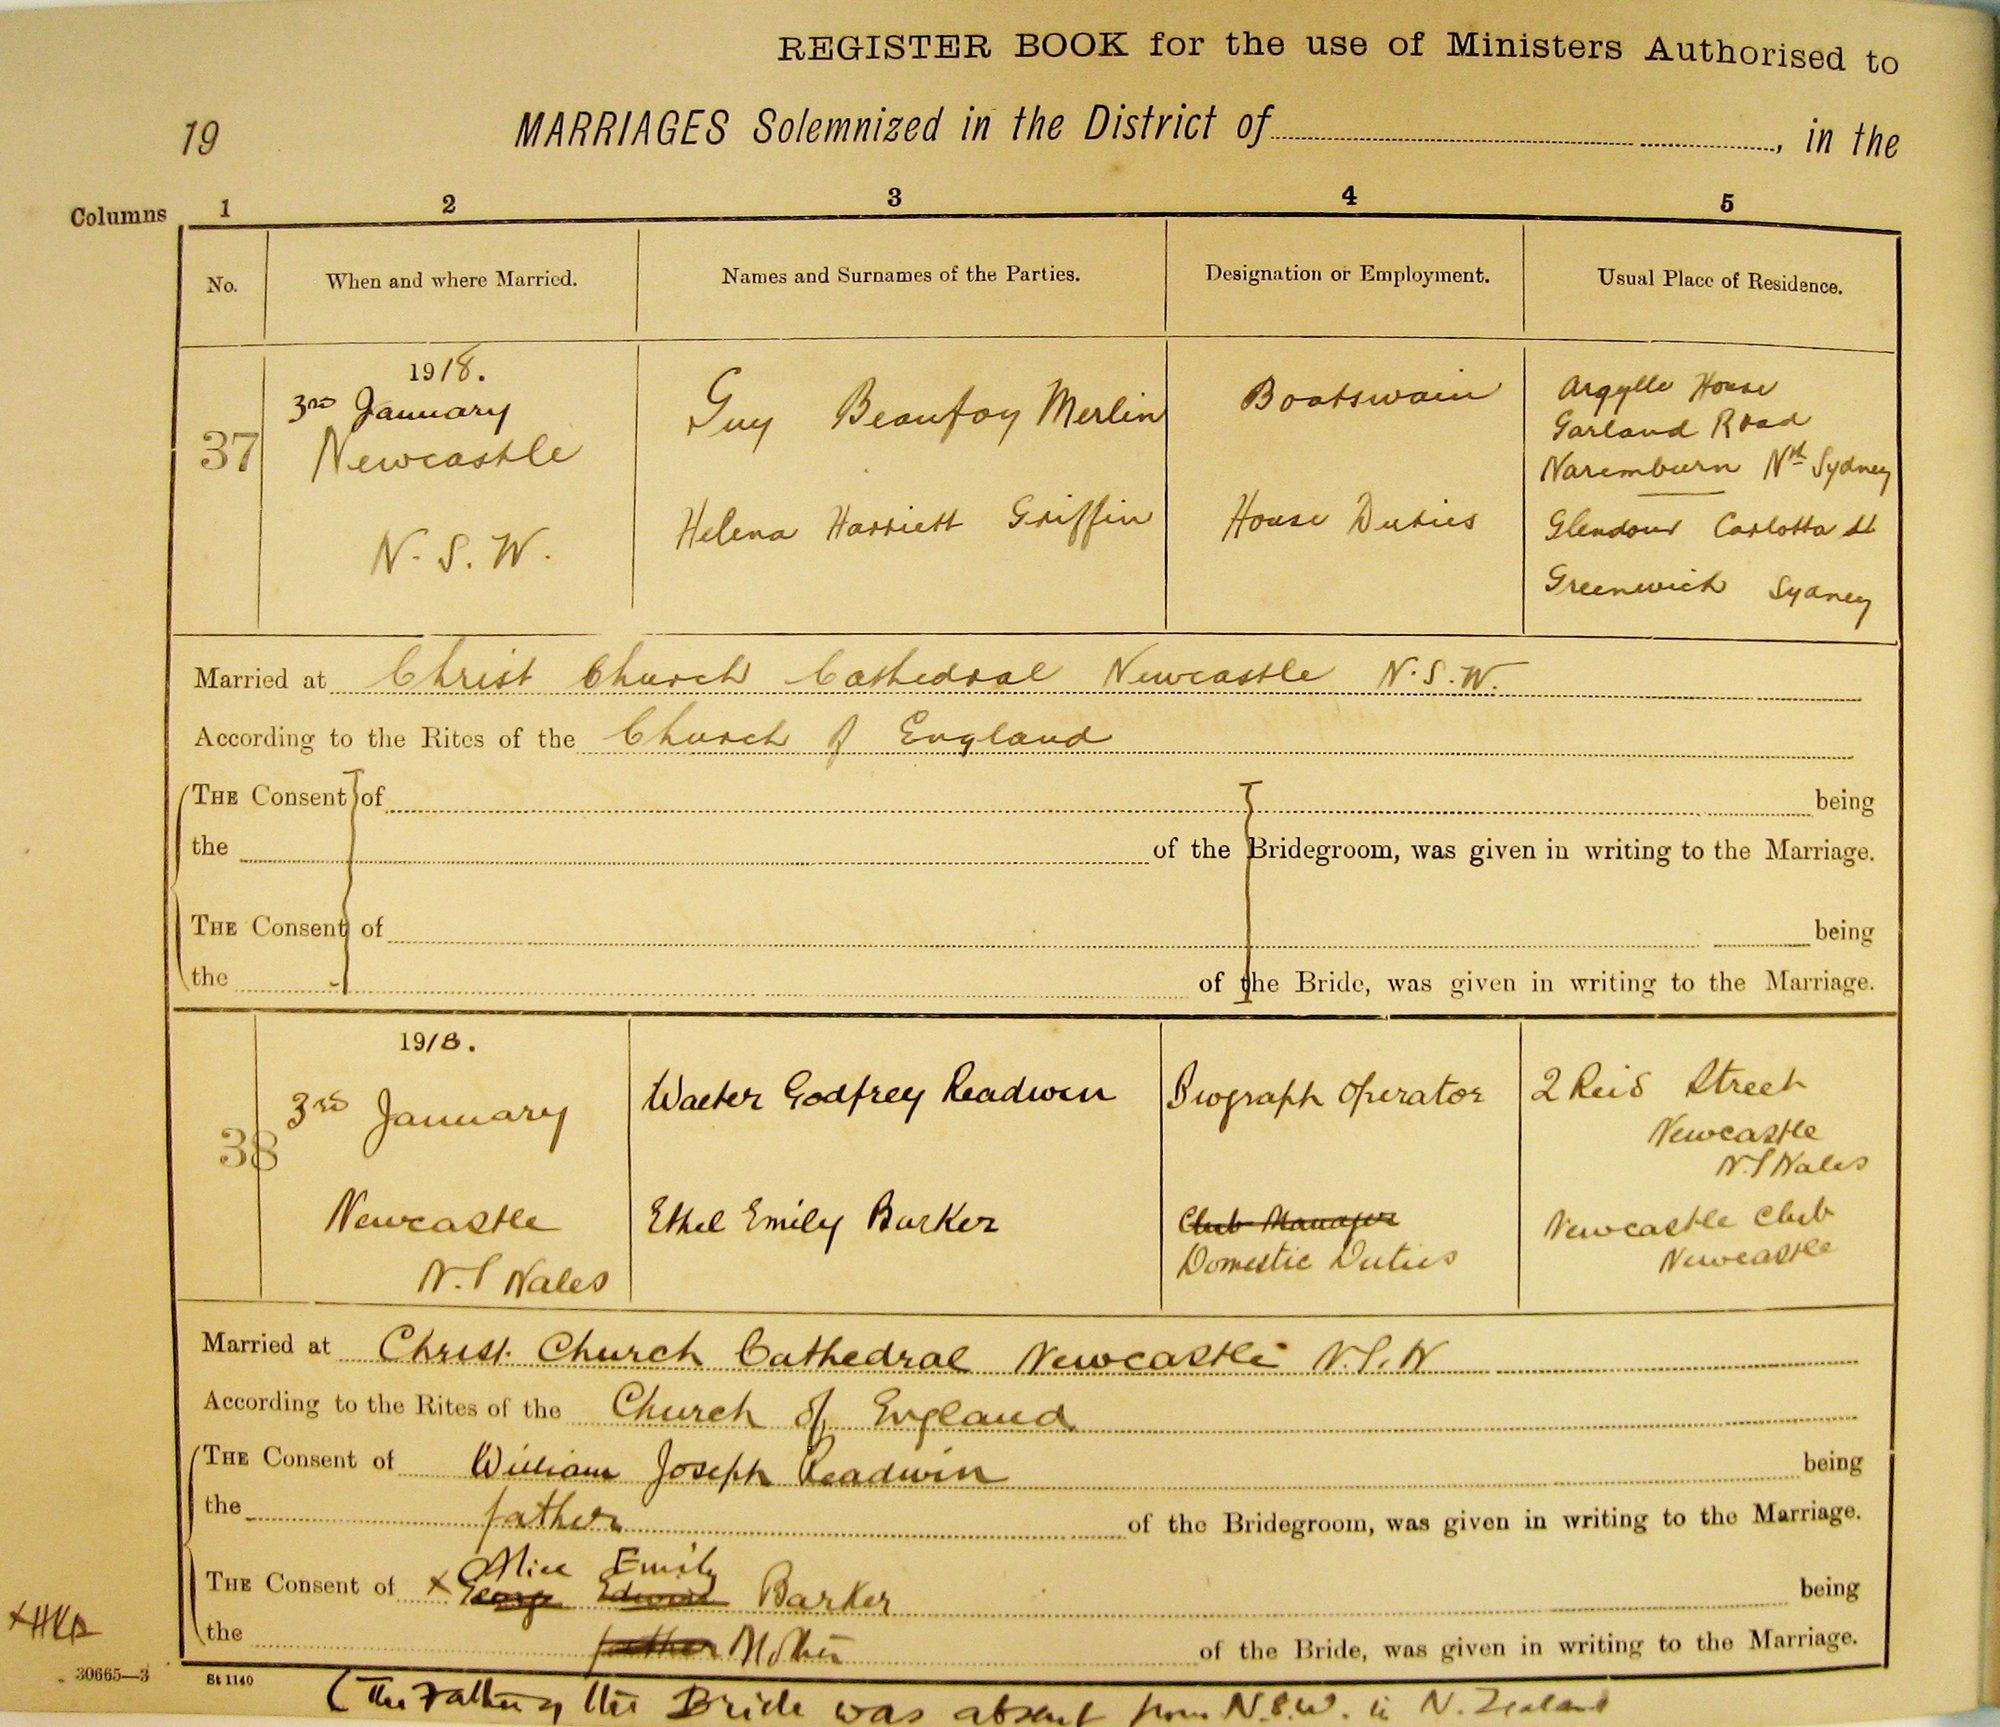 REGISTER BOOK for the use of Ministers Authorised to
19
MARRIAGES Solemnized in the District of , in the
Columns 1 2 3 4 5
No. When and where Married. Names and Surnames of the Parties. Designation or Employment. Usual Place of Residence.
37
1918.
3rd January
Newcastle
N. S. W.
Guy Beaufoy Merlin
Helena Harriett Griffin
Boatswain
House Duties
Argylle House
Garland Road
Naremburn Nth Sydney
Glendour Carlotta St
Greenwich Sydney
Married at Christ Church Cathedral Newcastle N.S.W.
According to the Rites of the Church of England
THE Consent of being
the of the Bridegroom, was given in writing to the Marriage.
THE Consent of being
the of the Bride, was given in writing to the Marriage.
38
1918.
3rd January
Newcastle
N.S Wales
Walter Godfrey Readwin
Ethel Emily Barker
Biograph Operator
Club Manager
Domestic Duties
2 Reid Street
Newcastle
N.S Wales
Newcastle Club
Newcastle
Married at Christ Church Cathedral Newcastle N.S.W
According to the Rites of the Church of England
THE Consent of William Joseph Readwin being
the father of the Bridegroom, was given in writing to the Marriage.
Alice Emily
THE Consent of x George Edward Barker being
the father Mother of the Bride, was given in writing to the Marriage.
30665—3 St 1140
(The Father of the Bride was absent from N.S.W. in N. Zealand